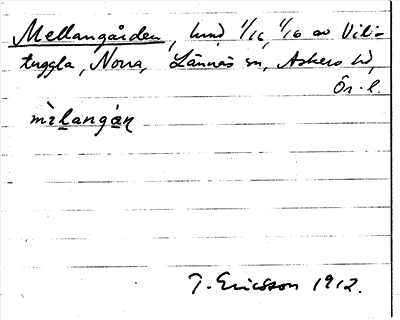 Mellangården, hmd 1/16, 1/16 av Vili-
tuggla, Norra, Lännäs sn, Askers hd,
Ör. l.
T. Ericsson 1912.